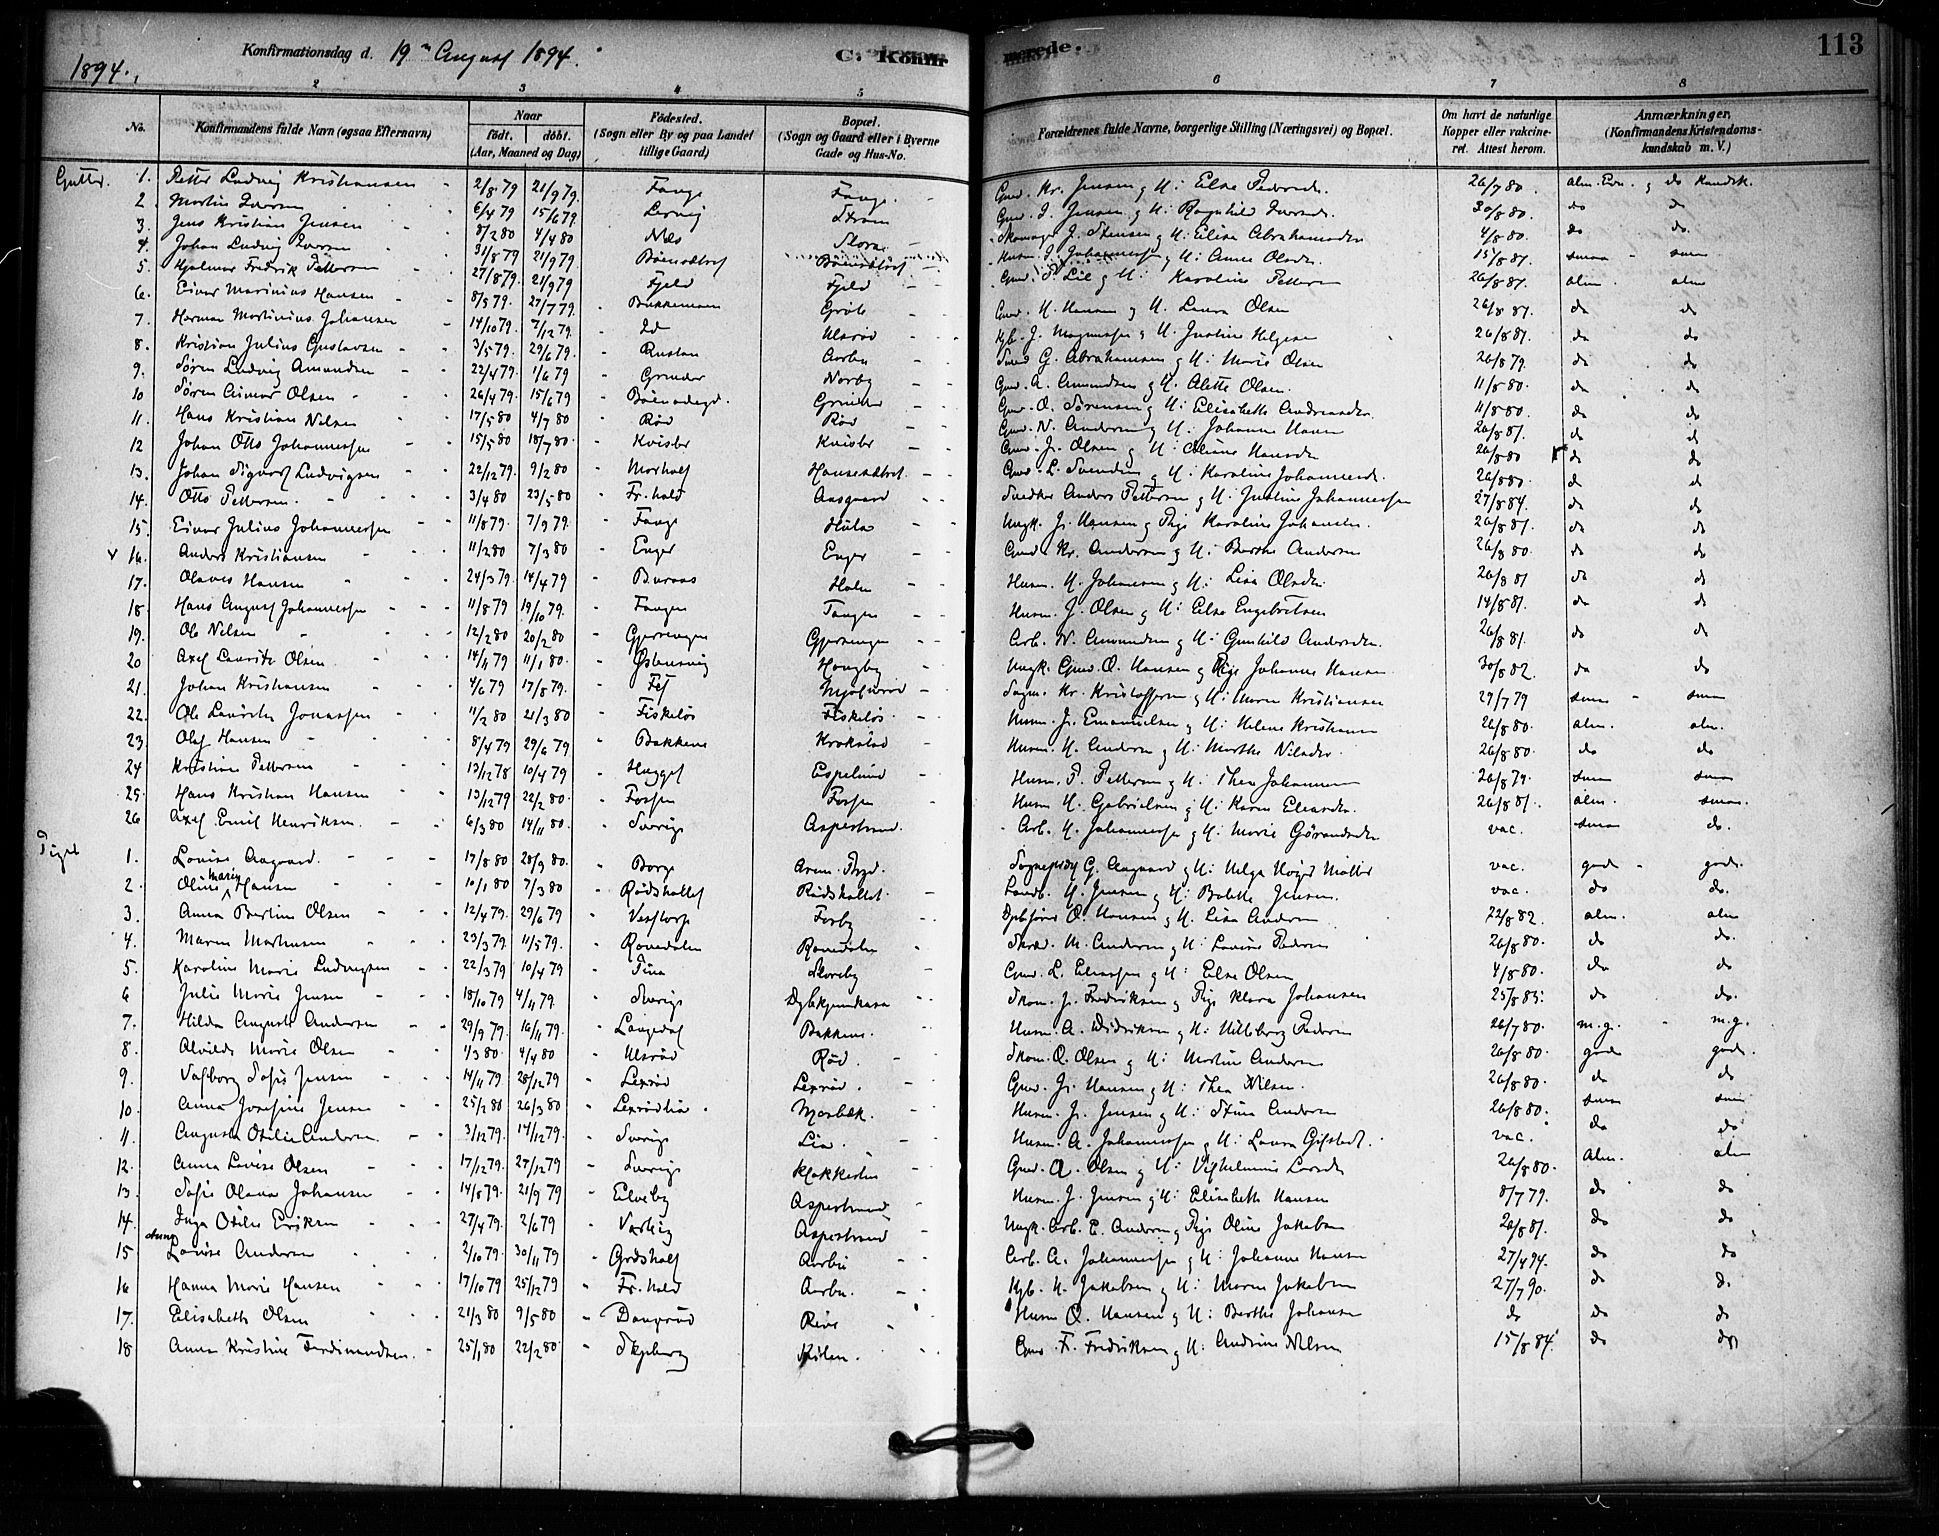 113
1894.
Konfirmationsdag d. 19de August 1894.
C. Konfirmerede.
2 3 4 5 6 7 8
No. Konfirmandens fulde Navn (ogsaa Efternavn) Naar født. døbt. (Aar, Maaned og Dag) Fødested. (Sogn eller By og paa Landet tillige Gaard) Bopæl. (Sogn og Gaard eller i Byerne Gade og Hus-No. Forældrenes fulde Navne, borgerlige Stilling (Næringsvei) og Bopæl. Om havt de naturlige Kopper eller vakcineret. Attest herom. Anmærkninger. (Konfirmandens Kristendomskundskab m. V.)
Gutter. 1. Petter Ludvig Kristiansen 2/8 79 21/9 79. Gmd. Kr. Jensen og H: Else Pedersd. 26/7 80.
2. Martin Iversen 6/4 79 15/6 79. Lervig Strøm Gmd. I. Jensen og H: Ragnhild Iversd. 30/8 80. do do
3. Jens Kristian Jensen 8/2 80 4/4 80 Næs Elise Abrahamsdtr 4/8 80. do do.
4. Johan Ludvig Iversen 31/8 79 21/9 79. Husm. I. Johannessen og H: Anne Olsdtr. 15/8 87.
5. Hjalmar Fredrik Pettersen 27/8 79. 21/9 79 Fjeld Fjeld Gmd. P. Lie og H: Karoline Pettersen 26/8 87. alm. alm
6. Einar Marinius Hansen 8/5 79. 27/7 79. Bakkemoen Gmd. H. Hansen og H. Laura Olsen 26/8 87. do do
7. Herman Martinius Johansen 14/10 79. 7/12 79. Id Ulsrød Justine Helgesen 26/8 87. do do
8. Kristian Julius Gustavsen 3/5 79. 29/6 79. Aarbu G. Abrahamsen og H: Marie Olsen 26/8 79. do do
9. Søren Ludvig Amundsen 22/4 79. 1/6 79 Grinder Norby Gmd. A. Amundsen og H. Alette Olsen. 11/8 80. do do
10 Søren Olsen 26/4 79. 15/6 79 Grinder Gmd. O. Sørensen og H: Elisabeth Andreasdtr. 11/8 80. do do
11. Hans Kristian Nilsen 17/5 80 4/7 80 Rød Rød Gmd. N. Andersen og H: Johanne Hansen 26/8 87. do do
12 Johan Otto Johannessen 15/5 80 18/7 80. Kvisler Kvisler Gmd. J. Olsen og H: Oliane Hansdtr 26/8 80 do do
13. Johan Sigvart Ludvigsen 22/12 79. 9/2 80 Gmd. L. Svendsen og H: Karoline Johannesd. 26/8 80. do do
14. Otto Pettersen. 3/4 80 23/5 80 Fr.hald Aasgaard Snedker Anders Pettersen og H: Justine Johannessen 27/8 84. do do
15. Einar Julius Johannessen 11/8 79. 7/9 79. Ungk. J. Hansen og Pige Karoline Johansen. 26/8 87. do do
16. Anders Kristiansen 11/2 80 7/3 80 Enger Enger Gmd. Kr. Andersen og H: Berthe Andersen 26/8 80. do do
17. Olaves Hansen 24/3 79. 14/4 79 Buraas Holm Husm. H. Johansen og H: Lisa Olsdtr. 26/8 81 do do
18. Hans August Johannessen 11/8 79 19/10 79. Tangen Tangen Husm. J. Olsen og H: Else Engebretsen 14/8 81. do do
19. Ole Nilsen 12/2 80 20/2 80 Arb. N. Amundsen og H: Gunhild Andersdtr. 26/8 81. do do
20 Axel Lauritz Olsen 14/11 79 11/1 80. Haugby Ungk. Gmd. O. Hansen og Pige Johanne Hansen 30/8 82. do do
21. Johan Kristiansen 4/6 79 17/8 79. Sagm. Kr. Kristoffersen og H: Maren Kristiansen 29/7 79
22. Ole Lauritz Jonassen 11/2 80 21/3 80 Fiskeløs Fiskeløs. Husm. J. Emanuelsen og H: Helene Kristiansen 26/8 80. alm. alm.
23. Olaf Hansen 8/4 79 29/6 79 Bakkene Krokstad Husm. H. Andersen og H: Marthe Nilsdtr. 26/8 80. do do
24 Kristian Pettersen 13/12 78 10/4 79 Espelund Husm. P. Pettersen og H: Thea Johannesen 26/8 79.
25. Hans Kristian Hansen 13/12 79 22/2 80. Fossen Fossen Husm H. Gabrielsen og H: Karen Eliasdtr. 26/8 81. alm.
26 Axel Emil Henriksen. 6/3 80 14/11 80. Sverige Aspestrand. Arb. H. Johannessen og H: Marie Göransdtr vac. do.
Piger 1. Louise Aagaard. 17/8 80 28/9 80. Borge Sogneprest G. Aagaard og H: Helga Høyer Møller vac. gode god.
2. Oline Marie Hansen 10/1 80 7/3 80 Rødshallet Rødshallet. Landb. H. Jensen og H: Bolette Jensen. vac. do do.
3. Anna Bertine Olsen 12/4 79. 29/6 79 Vesttorp Torby O. Hansen og H. Lisa Andersen 22/8 82. alm. alm
4. Maren Mathisen 23/3 79. 11/5 79. Ramedalen Ramedalen Skræd. M. Andersen og H: Lovise Pedersen 26/8 80. do do.
5. Karoline Marie Ludvigsen 22/3 79 10/4 79 Skoreby Gmd. L. Eliassen og H: Else Olsen 4/8 80. do do
6 Julie Marie Jensen 18/10 79 4/11 79. Sverige Skom. J. Fredriksen og Pige Klara Johansen 25/8 83. do do.
7. Hilda Auguste Andersen 29/9 79. 16/11 79. Langedal Bakkene. Husm. A. Didriksen og H: Hilleborg Pedersen 26/7 80. m.g. m.g.
8. Alvilde Marie Olsen 1/3 80. 4/4 80 Ulsrød Rød. Skom. O. Olsen og H: Martine Andersen 26/8 80. gode god.
9. Valborg Sofie Jensen 14/11 79 28/12 79 Lexrød Lexrød. Gmd. J. Hansen og H: Thea Nilsen. 26/8 80. do do
10. Anna Josefine Jensen 25/2 80 26/3 80 Lexrødlia. Mjærbæk. Husm. J. Jensen og H: Stina Andersen 26/8 80.
11. Augusta Otilie Andersen. 3/12 79. 14/12 79. Sverige Lia. Husm. A. Johannessen og H: Laura vac. do do
12. Anna Lovise Olsen 17/12 79. 27/12 79 Sverige Klokkerlia Gmd. A. Olsen og H: Vilhelmine Larsdtr 26/8 80. Alm. alm
13. Sofie Olava Johansen 14/8 79. 21/9 79 Elveby Aspestrand Husm. J. Jensen og H: Elisabeth Hansen 8/7 79. do do
14. Inga Otilie Eriksen 27/4 79. 2/6 79 Aspestrand Ungk. Arb. E. Andersen og Pige Oline Jakobsen 26/8 81. do do
15 Anna Lovise Andersen 2/10 79. 30/11 79 Aarbu Arb. A. Johannessen og H: Johanne Hansen 27/7 94. do do
16 Hanna Marie Hansen 17/10 79 25/12 79 Fr.hald Aarbu. H. Jakobsen og H: Maren Jakobsen 27/7 90. do do
17. Elisabeth Olsen 21/3 80 9/5 80 Husm O. Hansen og H: Berthe Johansen do do do
18 Anna Kristine Ferdinandsen. 25/1 80 22/2 80 Skjeberg Gmd. F. Fredriksen og H: Andrine Nilsen 15/8 84. do do